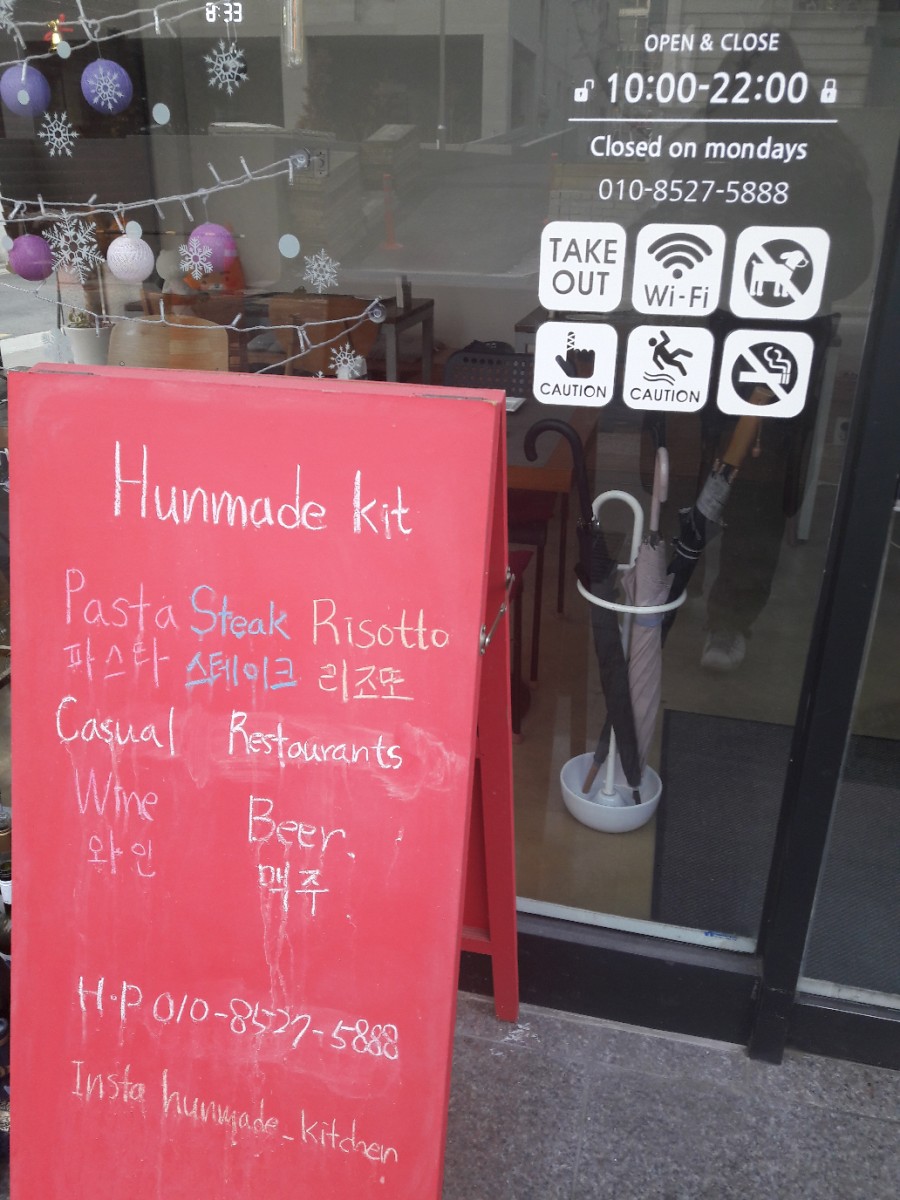 8:33
OPEN & CLOSE
10:00-22:00
Closed on mondays
010-8527-5888
TAKE OUT
Wi-Fi
CAUTION
CAUTION
Hunmade kit
Pasta Steak Risotto
파스타 스테이크 리조또
Casual Restaurants
Wine Beer.
와인 맥주
H·P 010-8527-5888
Insta hunmade_kitchen